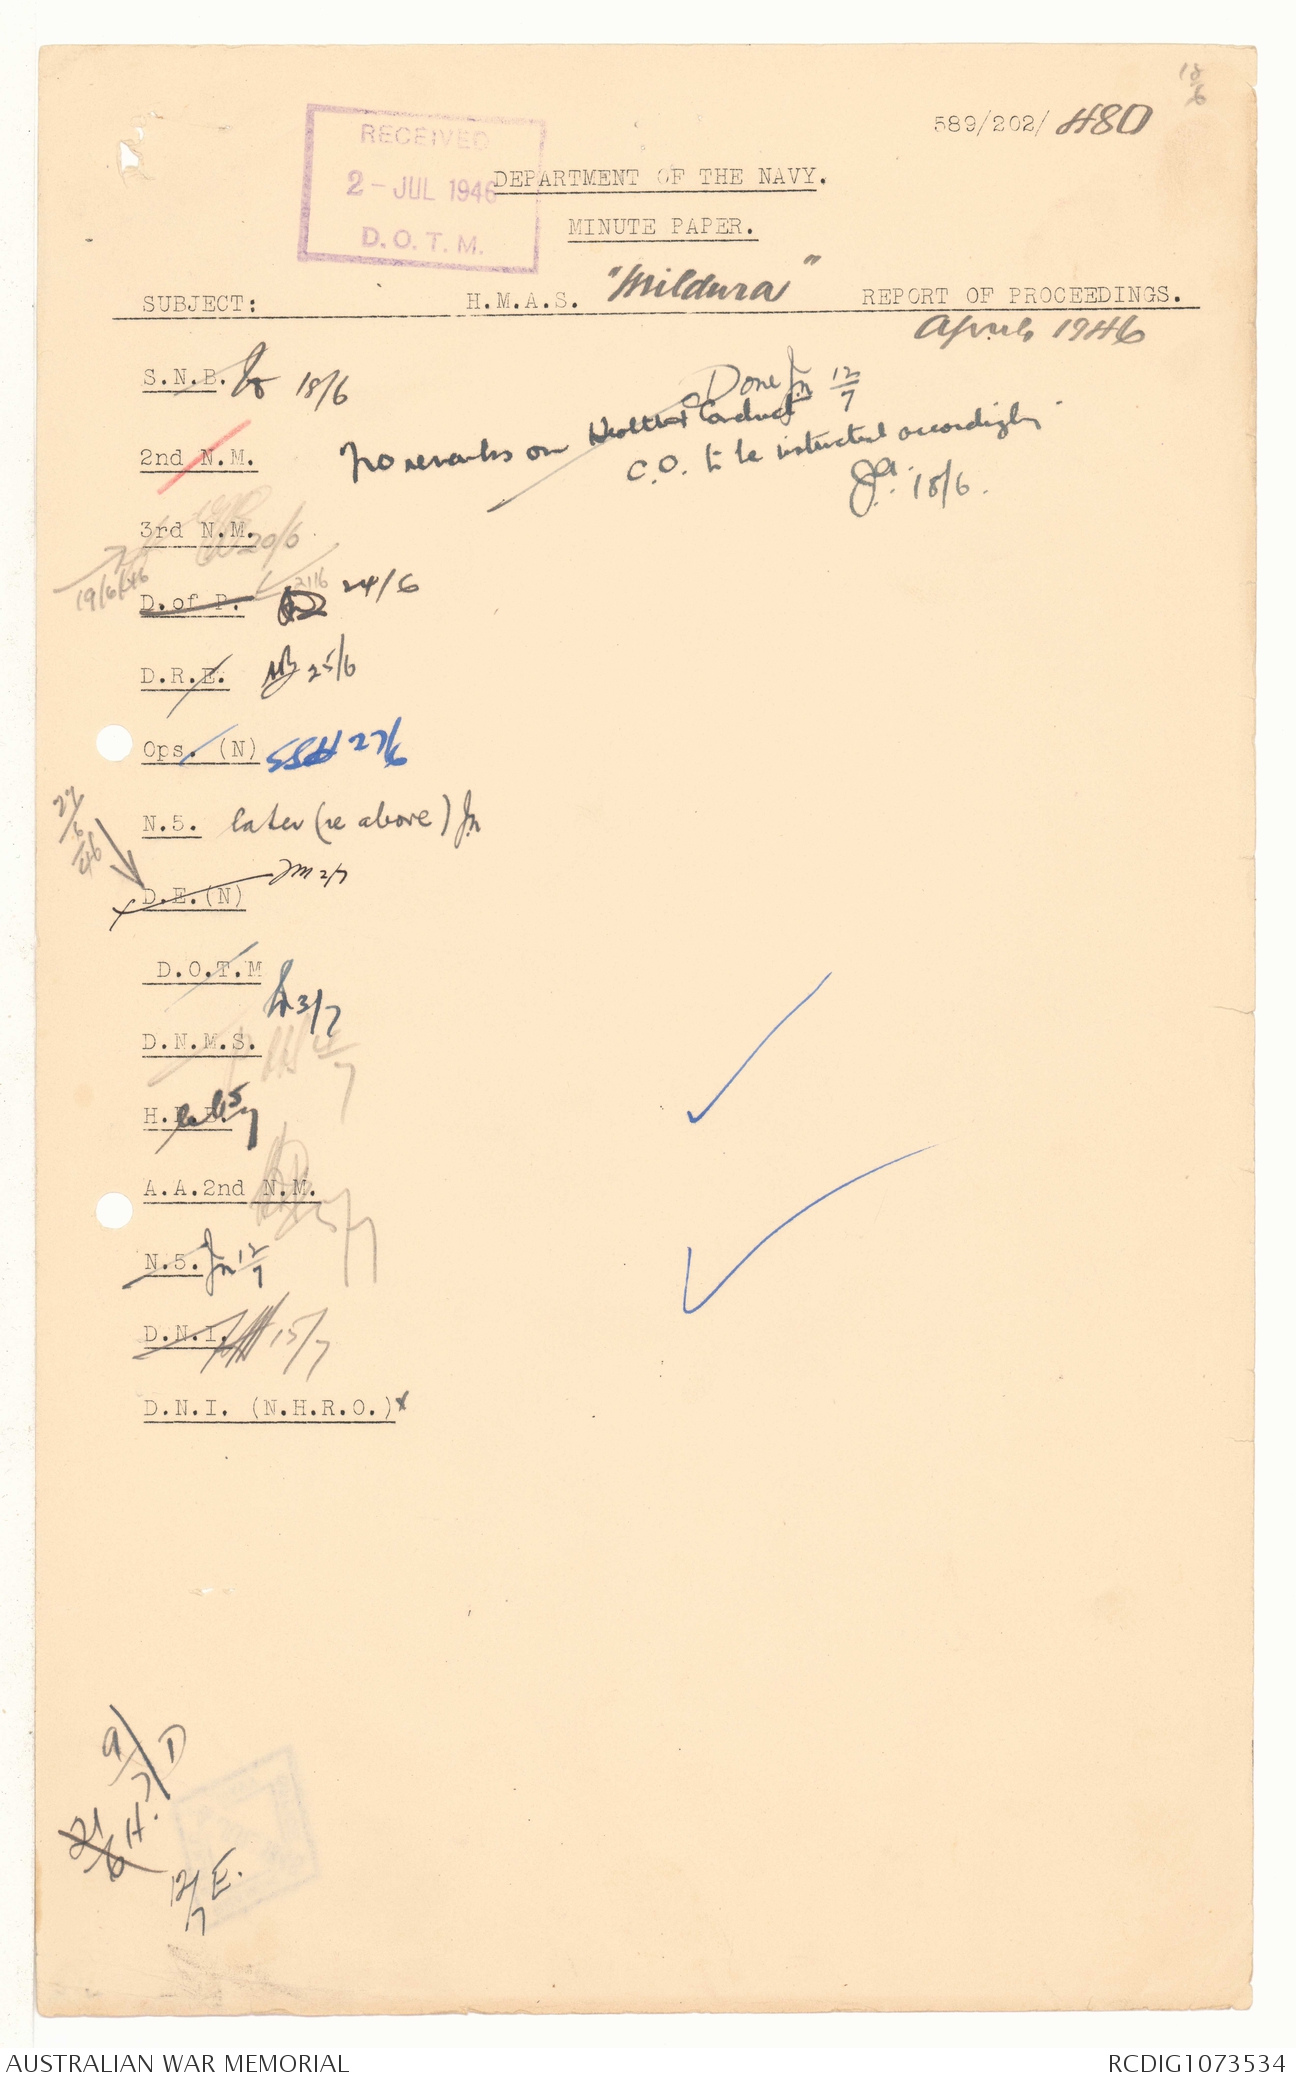 18/6
589/202/ 480
RECEIVED
2 - JUL 1946
D.O.T.M.
DEPARTMENT OF THE NAVY.
MINUTE PAPER.
SUBJECT: H.M.A.S. "Mildura" REPORT OF PROCEEDINGS.
April 1946
S.N.B. 18/6
Done 12/7
No remarks on Health & Conduct
C.O. to be instructed accordingly.
18/6.
2nd N.M.
3rd N.M. 20/6
19/6/46
21/6
D.of P. 24/6
D.R.E. 25/6
Ops. (N) 27/6
N.5. later (re above)
27/6/46
D.E.(N) 2/7
D.O.T.M 3/7
D.N.M.S. 4/7
5/7
A.A.2nd N.M. 5/7
N.5. 12/7
D.N.I. 15/7
D.N.I. (N.H.R.O.)x
9/7 D
21/6 H.
12/7 E.
AUSTRALIAN WAR MEMORIAL
RCDIG1073534